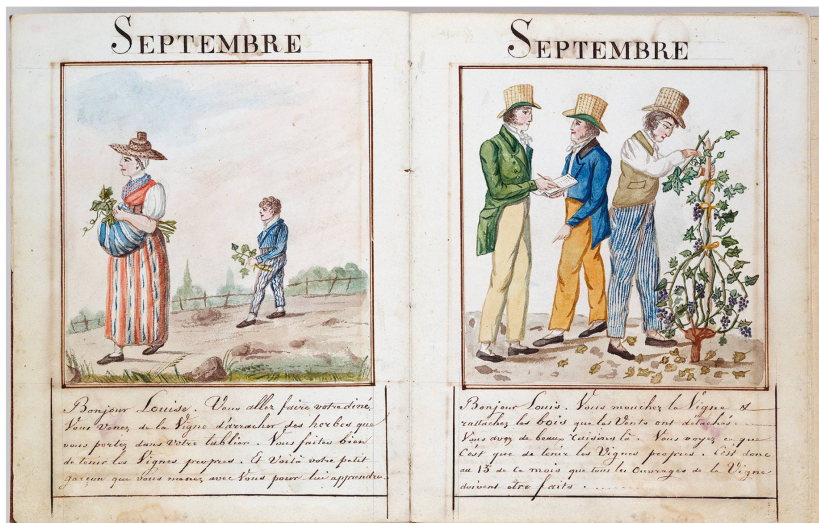 SEPTEMBRE
Bonjour Louise. Vous allez faire votre diné,
Vous Venez de la Vigne d'arracher des herbes que
vous portez dans votre tablier. Vous faites bien
de tenir les Vignes propres. Et Voilà votre petit
garçon que vous menez avec Vous pour lui apprendre.
SEPTEMBRE
Bonjour Louis. Vous mouchez la Vigne &
rattachez les bois que les Vents ont détachés.
Vous avez de beaux raisins là. Vous voyez ce que
C'est que de tenir les Vignes propres. C'est donc
au 15 de ce mois que tous les Ouvrages de la Vigne
doivent etre faits.